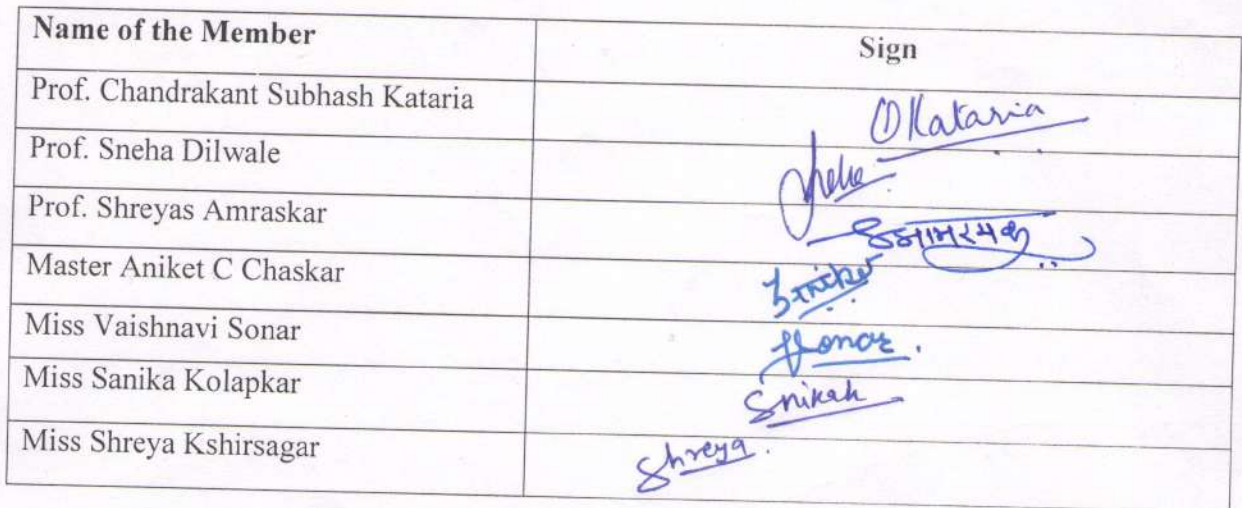 Name of the Member Sign
Prof. Chandrakant Subhash Kataria CKataria
Prof. Sneha Dilwale
Prof. Shreyas Amraskar
Master Aniket C Chaskar
Miss Vaishnavi Sonar Sonar.
Miss Sanika Kolapkar
Miss Shreya Kshirsagar Shreya.